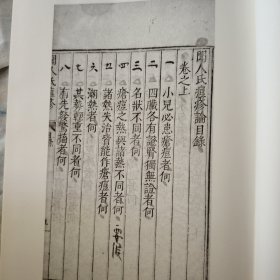 聞人氏痘疹論目錄
卷之上
一 小兒必患瘡痘者何
二 四臟各有證腎獨無證者何
三 名狀不同者何
四 瘡痘之熱與諸熱不同者何
五 諸熱失治皆能作瘡痘者何
六 潮熱者何
七 其發輕重不同者何
八 有先發驚搐者何
聞人氏痘疹